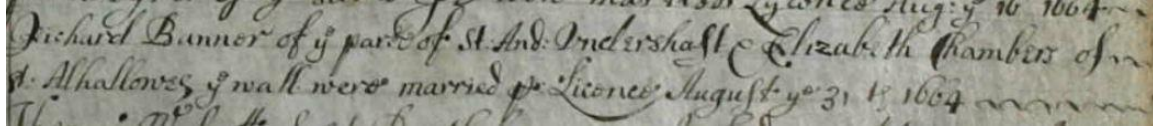 Lycence Aug: yͤ 16 1664
Richard Banner of yͤ parr: of St: And: Vndershaft & Elizabeth Chambers of
st: Alhallowes yͤ wall were married pr: Licence August yͤ 31 th 1664